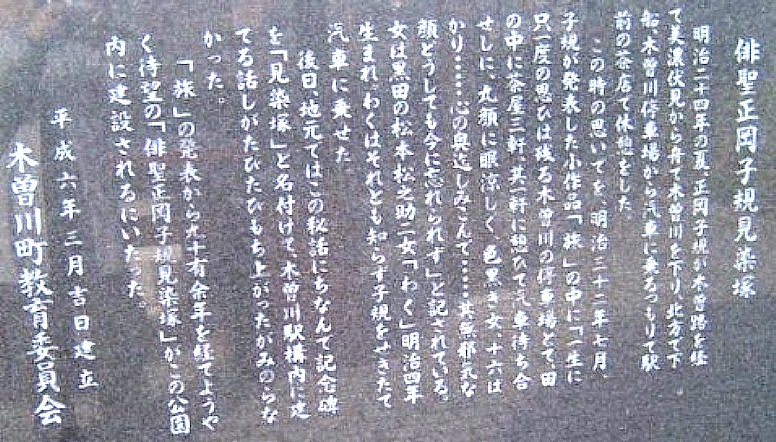 俳聖正岡子規見染塚
明治二十四年の夏、正岡子規が木曽路を経
て美濃伏見から舟で木曽川を下り、北方で下
船、木曽川停車場から汽車に乗るつもりで駅
前の茶店で休憩をした。
この時の思いでを、明治三十二年七月、
子規が発表した小作品「旅」の中に「一生に
只一度の思ひは残る木曽川の停車場とて、田
の中に茶屋三軒、其一軒に憩ひて汽車待ち合
せしに、丸顔に眼涼しく、色黒き女、十六は
かり……心の奥迄しみこんで……其無邪気な
顔どうしても今に忘れられず」と記されている。
女は黒田の松本松之助二女「わく」明治四年
生まれ。わくはそれとも知らず子規をせきたて
汽車に乗せた。
後日、地元ではこの秘話にちなんで記念碑
を「見染塚」と名付けて、木曽川駅構内に建
てる話しがたびたびもち上がったがみのらな
かった。
「旅」の発表から九十有余年を経てようや
く待望の「俳聖正岡子規見染塚」がこの公園
内に建設されるにいたった。
平成六年三月吉日建立
木曽川町教育委員会